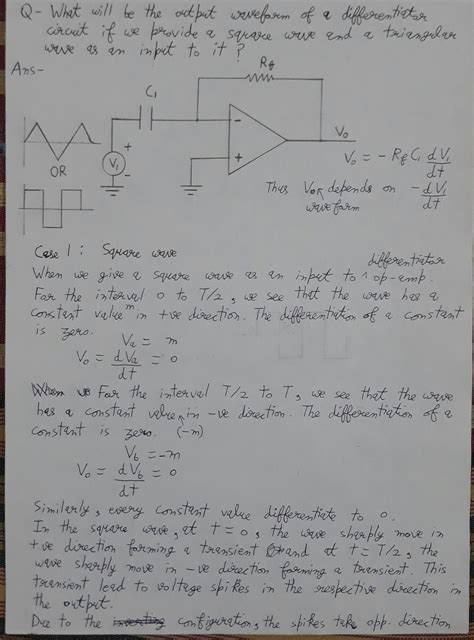 Q- What will be the output waveform of a differentiator
circuit if we provide a square wave and a triangular
wave as an input to it ?
Ans-
Rf
C1
OR
V1
+
-
-
+
Vo
Vo = - Rf C1 dV1/dt
Thus Vo depends on - dV1/dt
waveform
Case 1 : Square wave
differentiator
When we give a square wave as an input to ^ op-amp.
For the interval 0 to T/2, we see that the wave has a
constant value m in +ve direction. The differentiation of a constant
is zero.
Va = m
Vo = dVa/dt = 0
For the interval T/2 to T, we see that the wave
has a constant value in -ve direction. The differentiation of a
constant is zero. (-m)
Vb = -m
Vo = dVb/dt = 0
Similarly, every constant value differentiate to 0.
In the square wave, at t = 0, the wave sharply move in
+ve direction forming a transient and at t = T/2, the
wave sharply move in -ve direction forming a transient. This
transient lead to voltage spikes in the respective direction in
the output.
Due to the inverting configuration, the spikes take opp. direction